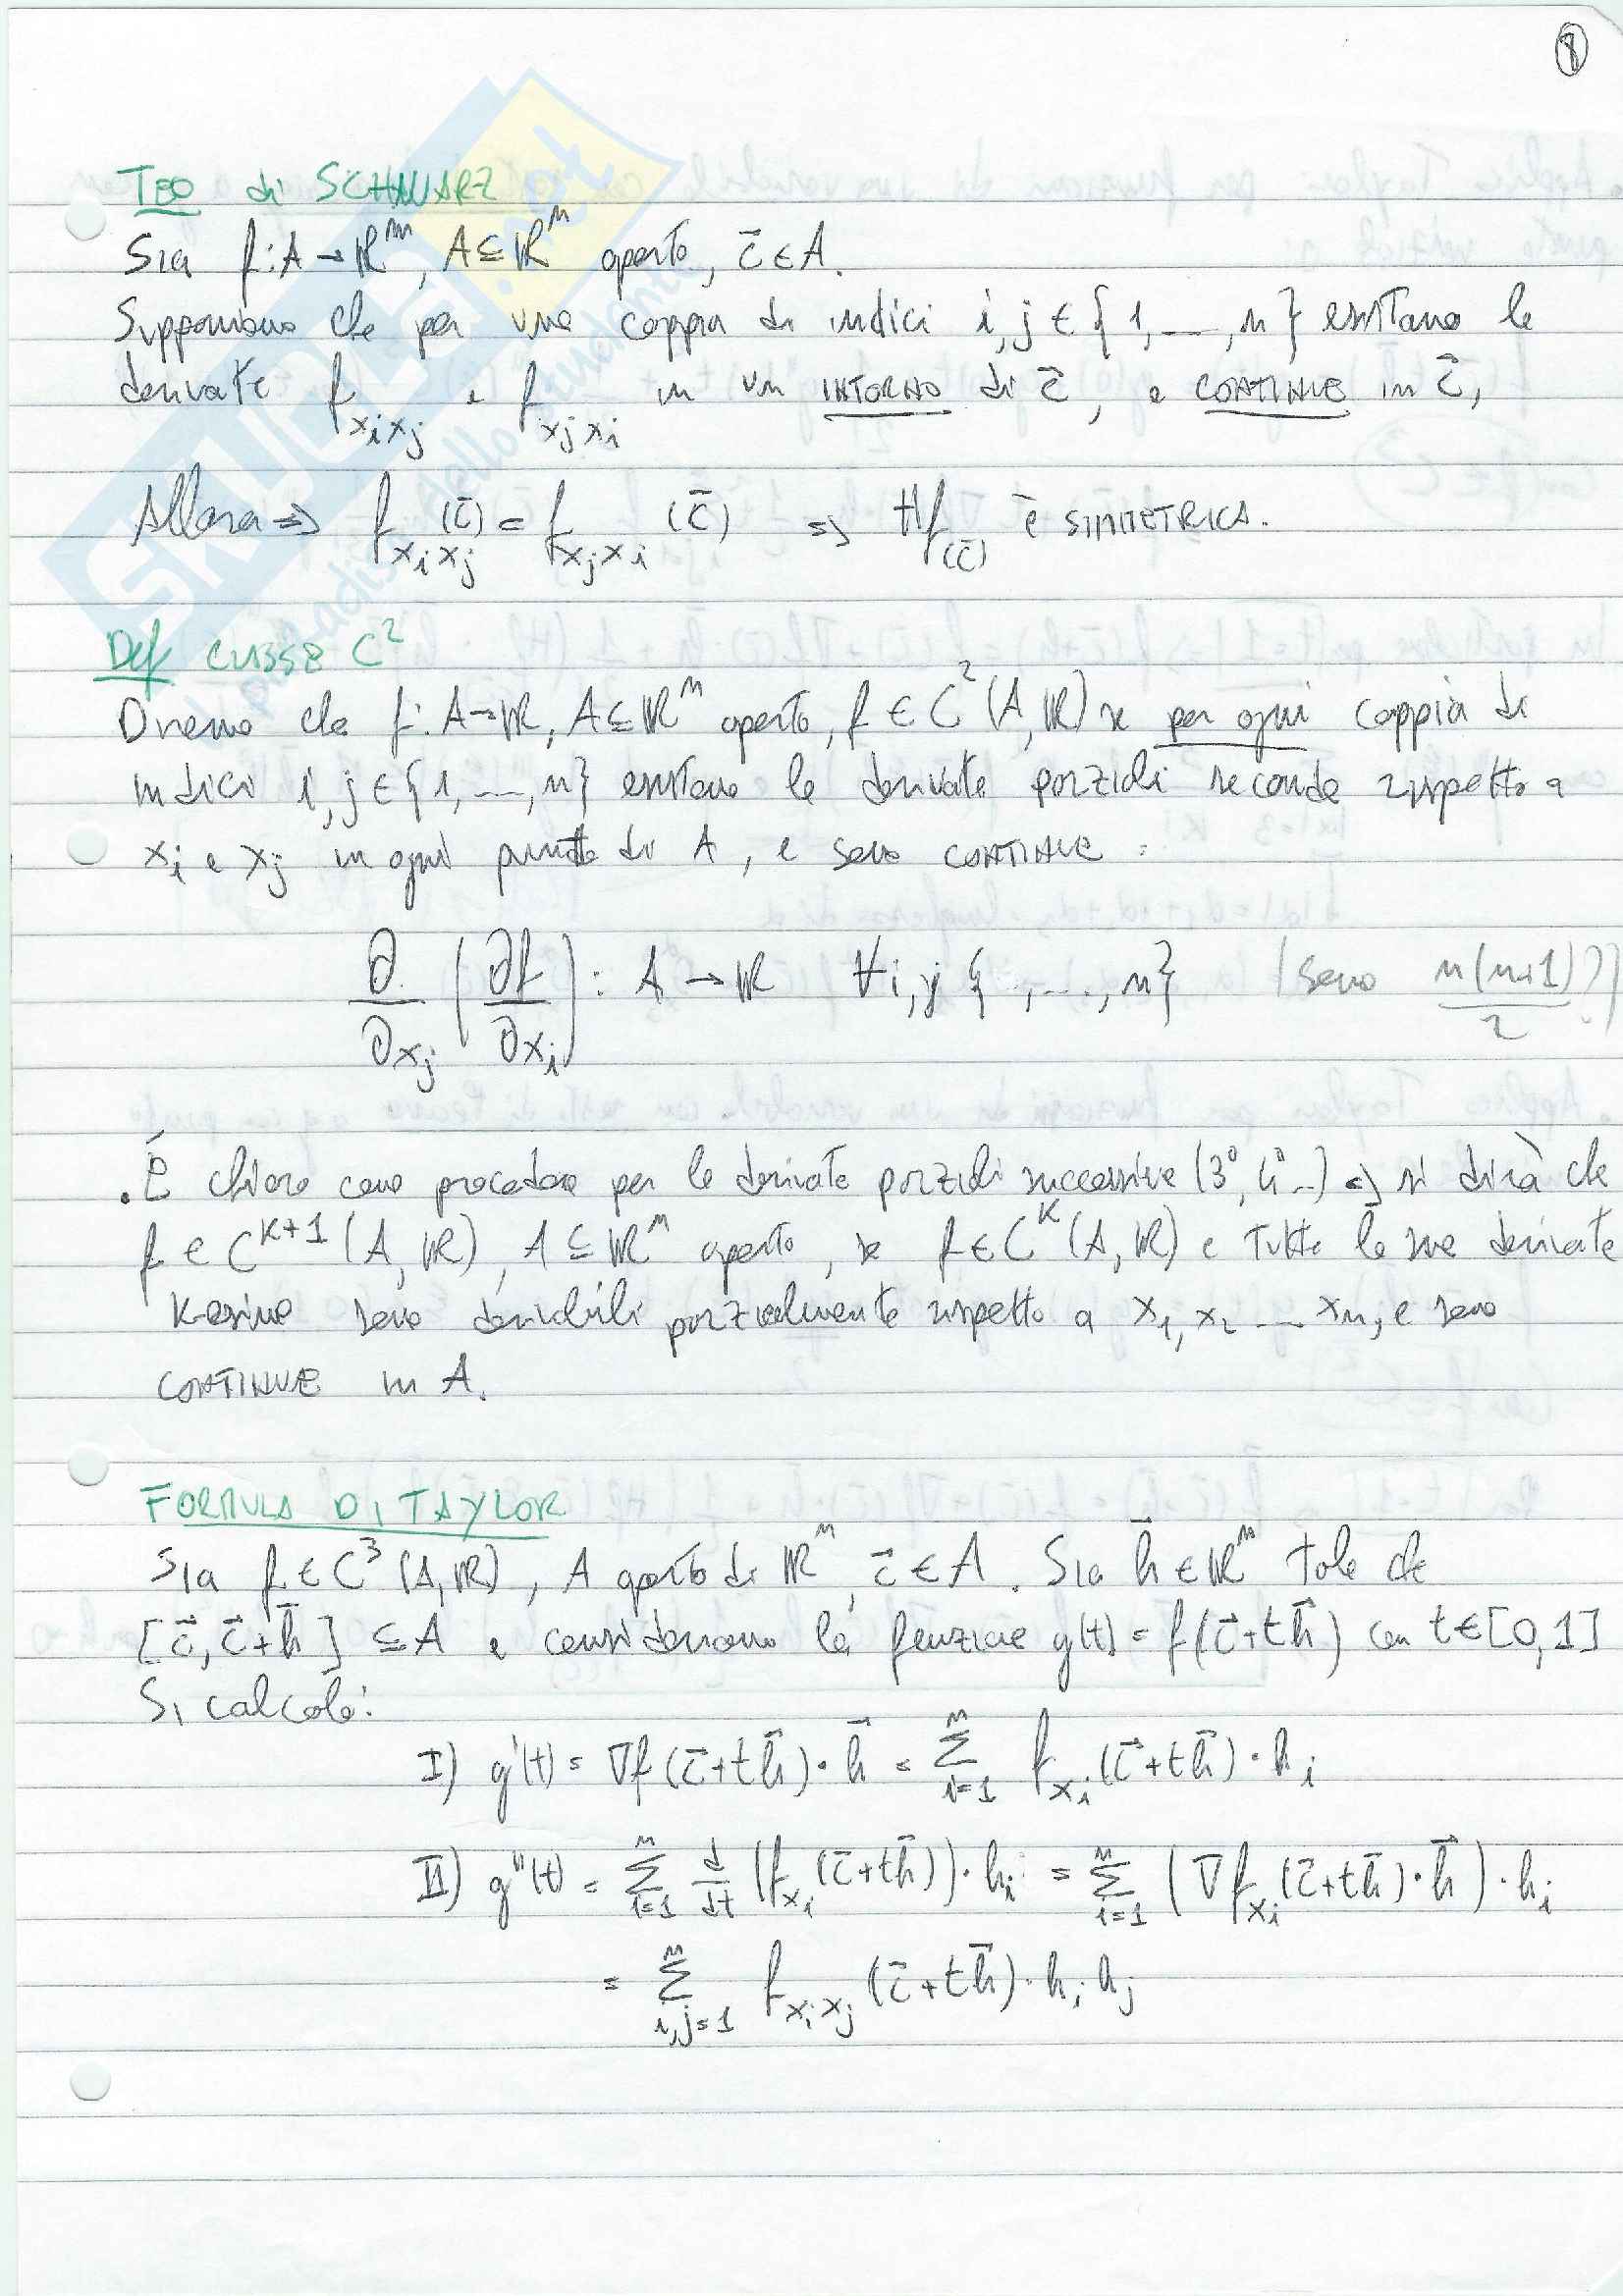 8
TEO di SCHWARZ
Sia f: A → ℝ^m, A ⊆ ℝ^n aperto, c̄ ∈ A.
Supponiamo che per una coppia di indici i, j ∈ {1, ..., n} esistano le
derivate f_{x_i x_j} e f_{x_j x_i} in un INTORNO di c̄, e CONTINUE in c̄,
Allora ⇒ f_{x_i x_j}(c̄) = f_{x_j x_i}(c̄) ⇒ Hf_{(c̄)} è SIMMETRICA.
Def CLASSE C²
Diremo che f: A → ℝ, A ⊆ ℝ^n aperto, f ∈ C²(A, ℝ) se per ogni coppia di
indici i, j ∈ {1, ..., n} esistano le derivate parziali seconde rispetto a
x_i e x_j in ogni punto di A, e sono CONTINUE :
∂/∂x_j (∂f/∂x_i) : A → ℝ ∀ i, j {1, ..., n} (sono n(n+1)/2 ?)
. È chiaro come procedere per le derivate parziali successive (3°, 4° ..) ⇒ si dirà che
f ∈ C^{K+1}(A, ℝ), A ⊆ ℝ^n aperto, se f ∈ C^K(A, ℝ) e tutte le sue derivate
K-esime sono derivabili parzialmente rispetto a x_1, x_2 ... x_n, e sono
CONTINUE in A.
FORMULA DI TAYLOR
Sia f ∈ C³(A, ℝ), A aperto di ℝ^n, c̄ ∈ A. Sia h̄ ∈ ℝ^n tale che
[c̄, c̄+h̄] ⊆ A e consideriamo la funzione g(t) = f(c̄+th̄) con t ∈ [0, 1]
Si calcola:
I) g'(t) = ∇f(c̄+th̄)·h̄ = Σ_{i=1}^{n} f_{x_i}(c̄+th̄)·h_i
II) g''(t) = Σ_{i=1}^{n} d/dt (f_{x_i}(c̄+th̄))·h_i = Σ_{i=1}^{n} (∇f_{x_i}(c̄+th̄)·h̄)·h_i
= Σ_{i,j=1}^{n} f_{x_i x_j}(c̄+th̄)·h_i h_j